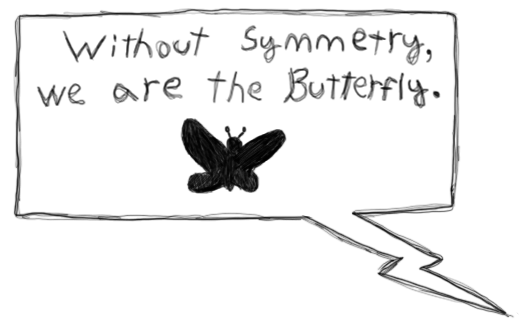 Without Symmetry,
we are the Butterfly.